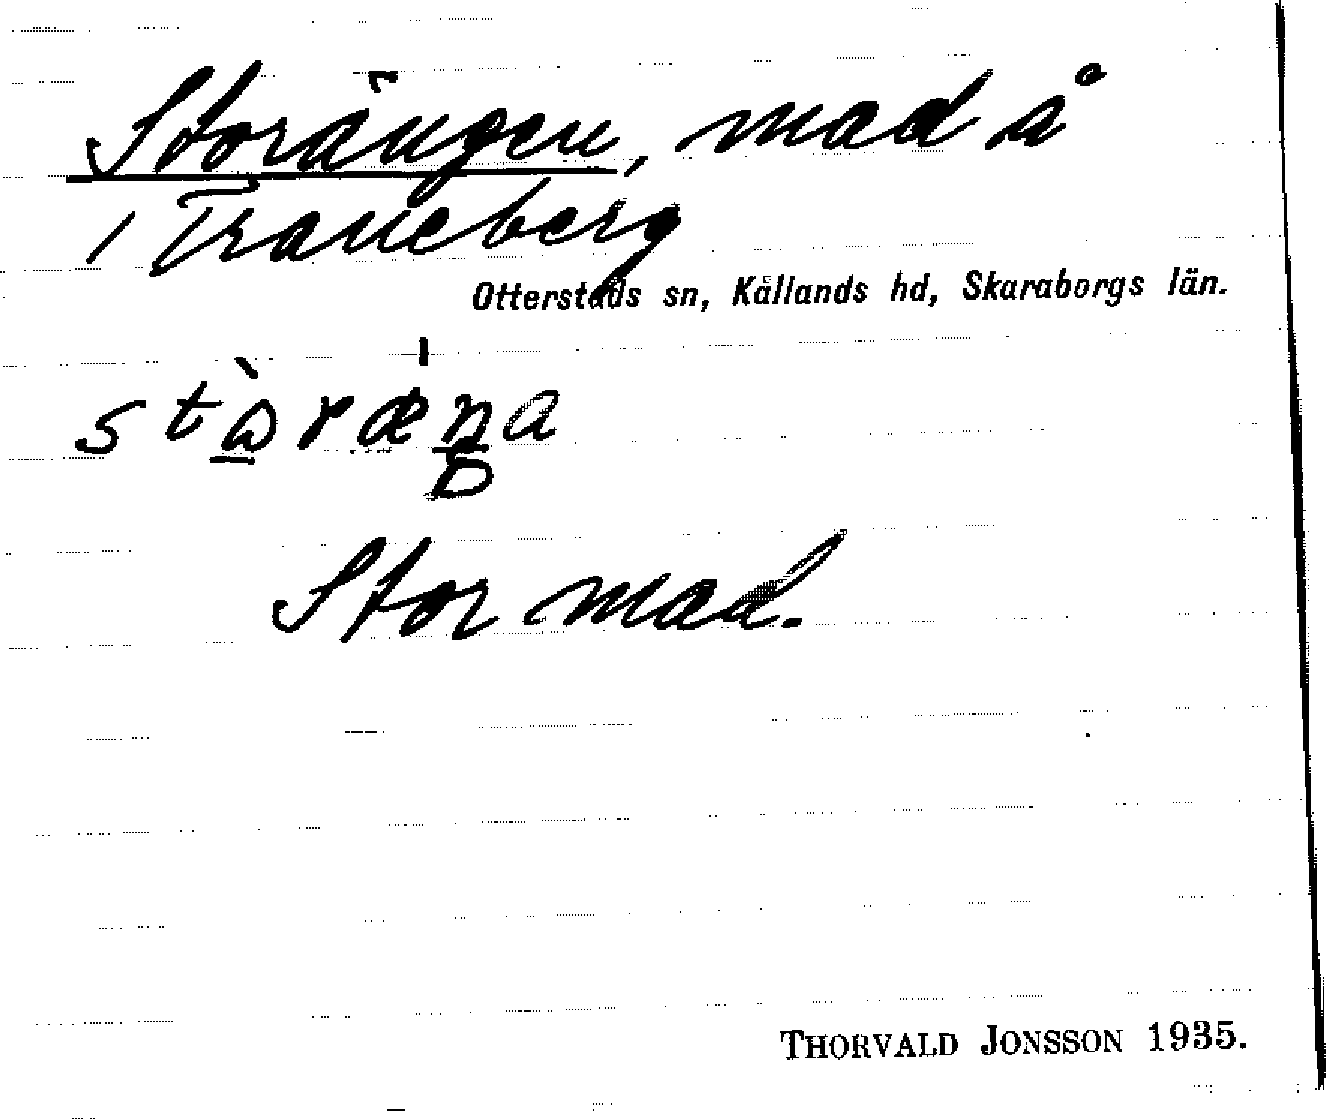 Storängen, mad å
i Traneberg
Otterstads sn, Kållands hd, Skaraborgs län.
Stor mad.
THORVALD JONSSON 1935.